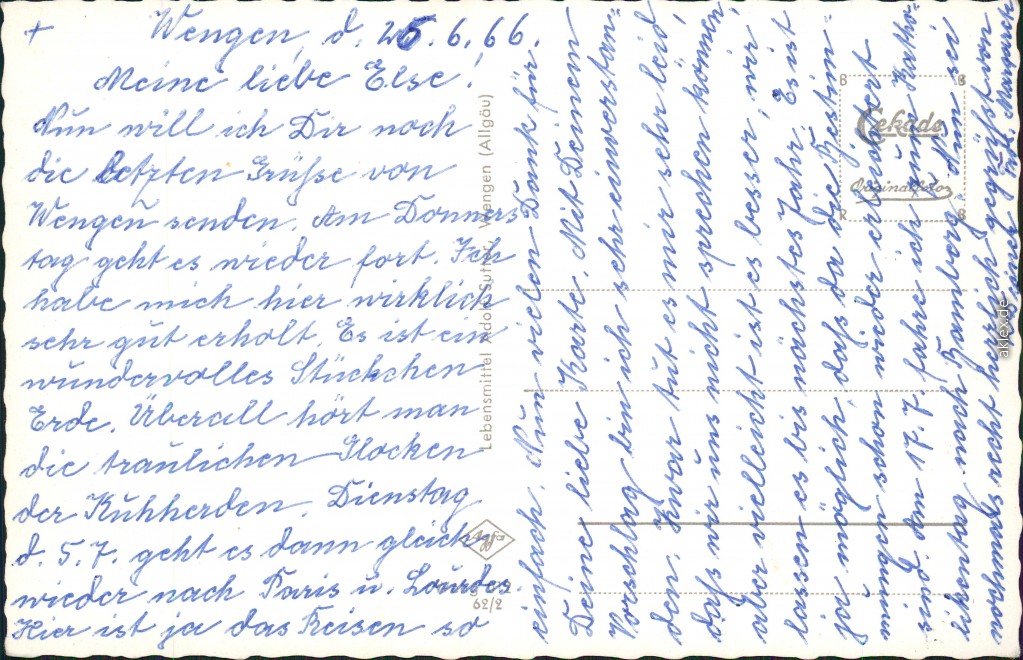 + Wengen, d. 26.6.66.
Meine liebe Else!
Nun will ich Dir noch
die letzten Grüße von
Wengen senden. Am Donners
tag geht es wieder fort. Ich
habe mich hier wirklich
sehr gut erholt. Es ist ein
wundervolles Stückchen
Erde. Überall hört man
die traulichen Glocken
der Kuhherden. Dienstag
d. 5.7. geht es dann gleich
wieder nach Paris u. Lourdes.
Hier ist ja das Reisen so
einfach. Nun vielen Dank für
Deine liebe Karte. Mit Deinem
Vorschlag bin ich sehr einverstan-
den. Zwar tut es mir sehr leid,
daß wir uns nicht sprechen können,
aber vielleicht ist es besser, wir
lassen es bis nächstes Jahr. Es ist
ja möglich, daß da die Bestim-
mungen schon wieder erleichtert
sind. Am 17.7. fahre ich zum Katho-
likentag nach Bamberg. Nun sei
nochmals recht herzlich gegrüßt von
Deiner
Lebensmittel Adolf Sutter, Wengen (Allgäu)
Agfa
62/2
Cekade
Originalfoto
aklex.de